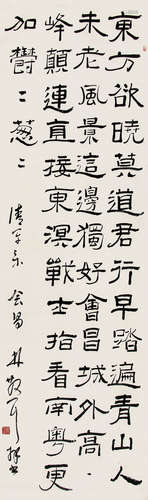 東方欲曉莫道君行早踏遍青山人
未老風景這邊獨好會昌城外高
峰顛連直接東溟戰士指看南粵更
加鬱〻蔥〻 清平樂 會昌 林散耳